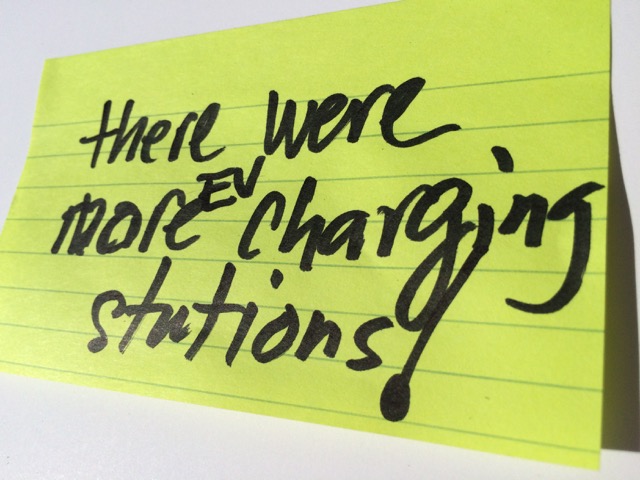 there were
more EV charging
stations